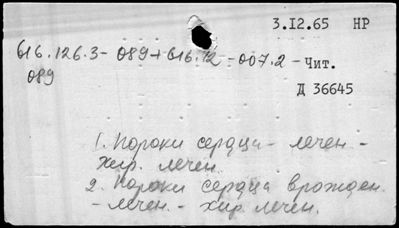 3.12.65 НР
616.126.3-089+616.12-007.2-Чит.
089
Д 36645
1. Пороки сердца - лечен. -
хир. лечен.
2. Пороки сердца врожден.
- лечен. - хир. лечен.